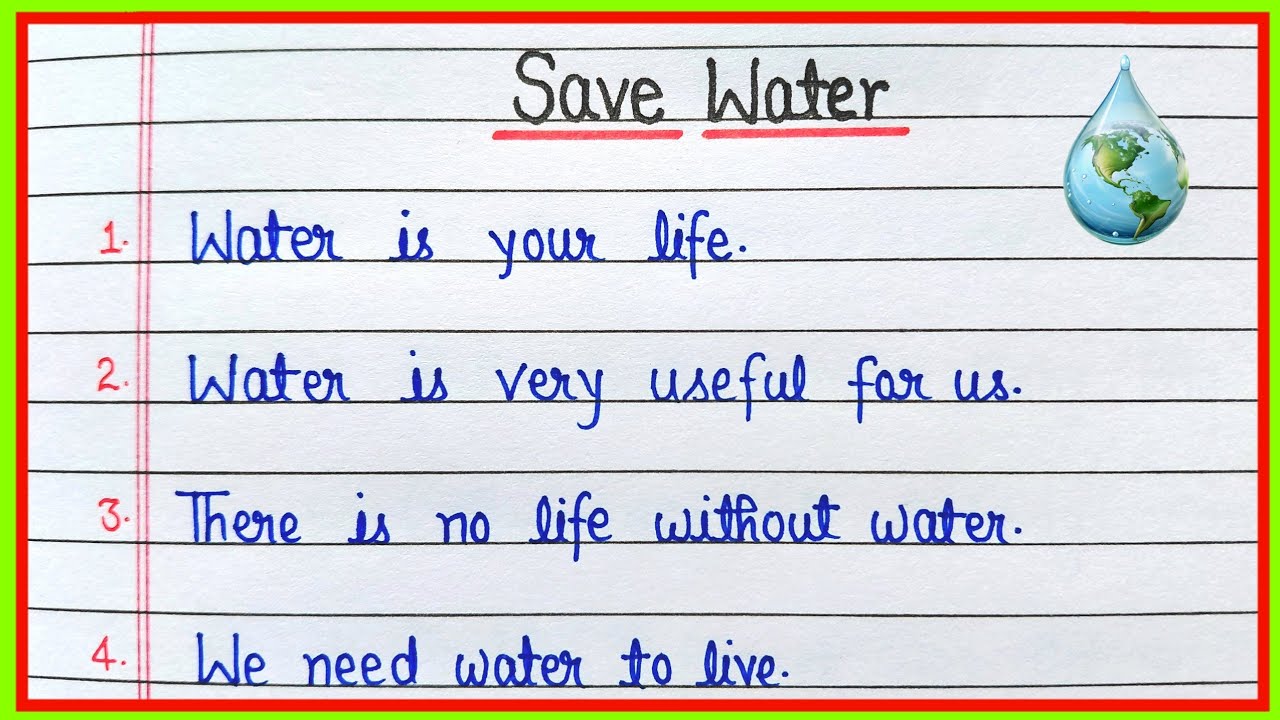 Save Water
1. Water is your life.
2. Water is very useful for us.
3. There is no life without water.
4. We need water to live.